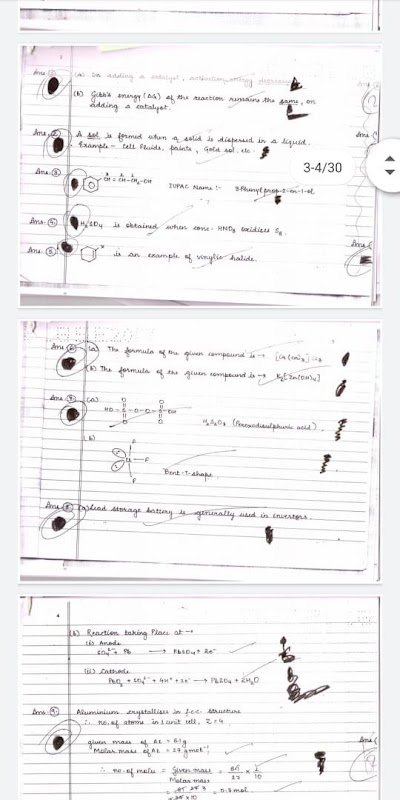 Ans (a) On adding a catalyst, activation energy decreases
(b) Gibb's energy (ΔG) of the reaction remains the same, on
adding a catalyst.
Ans. 2. A sol is formed when a solid is dispersed in a liquid.
Example - Cell fluids, paints, Gold sol, etc.
3-4/30
Ans. 3. CH = CH - CH2 - OH IUPAC Name :- 3-Phenylprop-2-en-1-ol
Ans. 4. H2SO4 is obtained when conc. HNO3 oxidises S8.
Ans. 5. X is an example of vinylic halide.
Ans 6. (a) The formula of the given compound is →
(b) The formula of the given compound is → K2[Zn(OH)4]
Ans. (a) HO - S - O - O - S - OH H2S2O8 (Peroxodisulphuric acid).
(b) F
F
F
Bent-T-shape
Ans 8 (a) Lead storage battery is generally used in invertors.
(b) Reaction taking Place at →
(i) Anode
SO4 2- + Pb → PbSO4 + 2e-
(ii) Cathode
PbO2 + SO4 2- + 4H+ + 2e- → PbSO4 + 2H2O
Ans. 9. Aluminium crystallises in f.c.c structure
∴ no. of atoms in 1 unit cell, Z = 4
given mass of Al = 8.1g
Molar mass of Al = 27 gmol-1
∴ no. of mole = Given mass / Molar mass = 81/27 × 1/10
= 0.3 mol